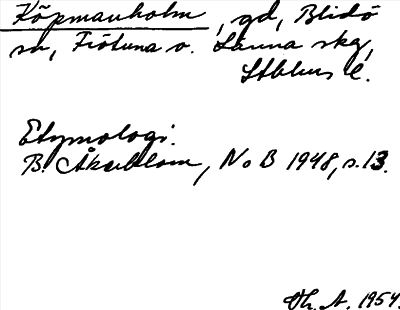 Köpmanholm, gd, Blidö
sn, Frötuna o. Länna skg,
Sthlms l.
Etymologi.
B. Åkerblom, NoB 1948, s. 13.
Th. A. 1954.